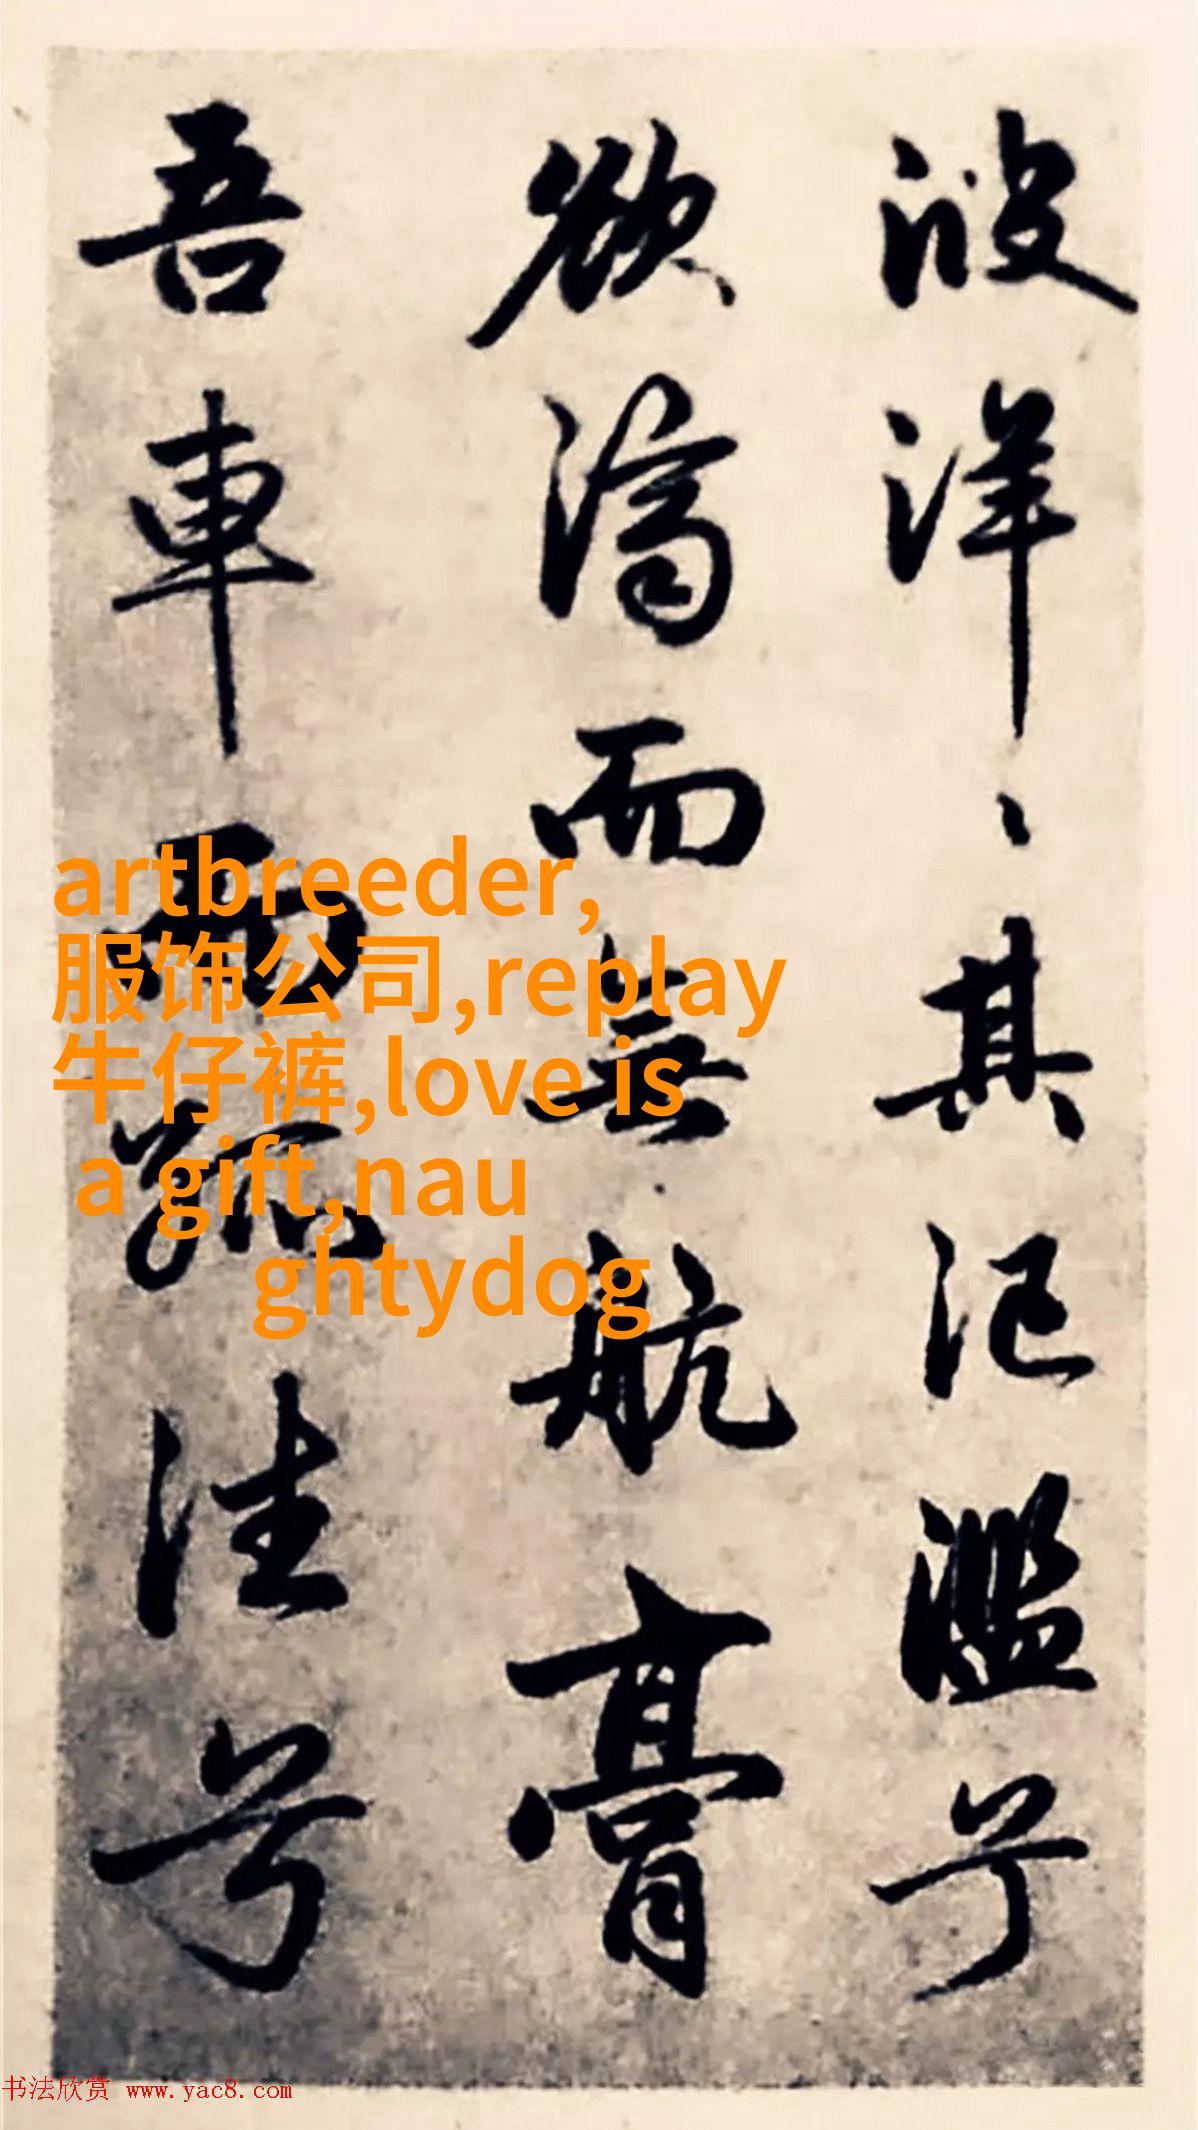 波洋〻其氾濫兮
欲濟而無航膏
吾車而兮
artbreeder,
服饰公司,replay
牛仔裤,love is
a gift,nau
ghtydog
书法欣赏 www.yac8.com